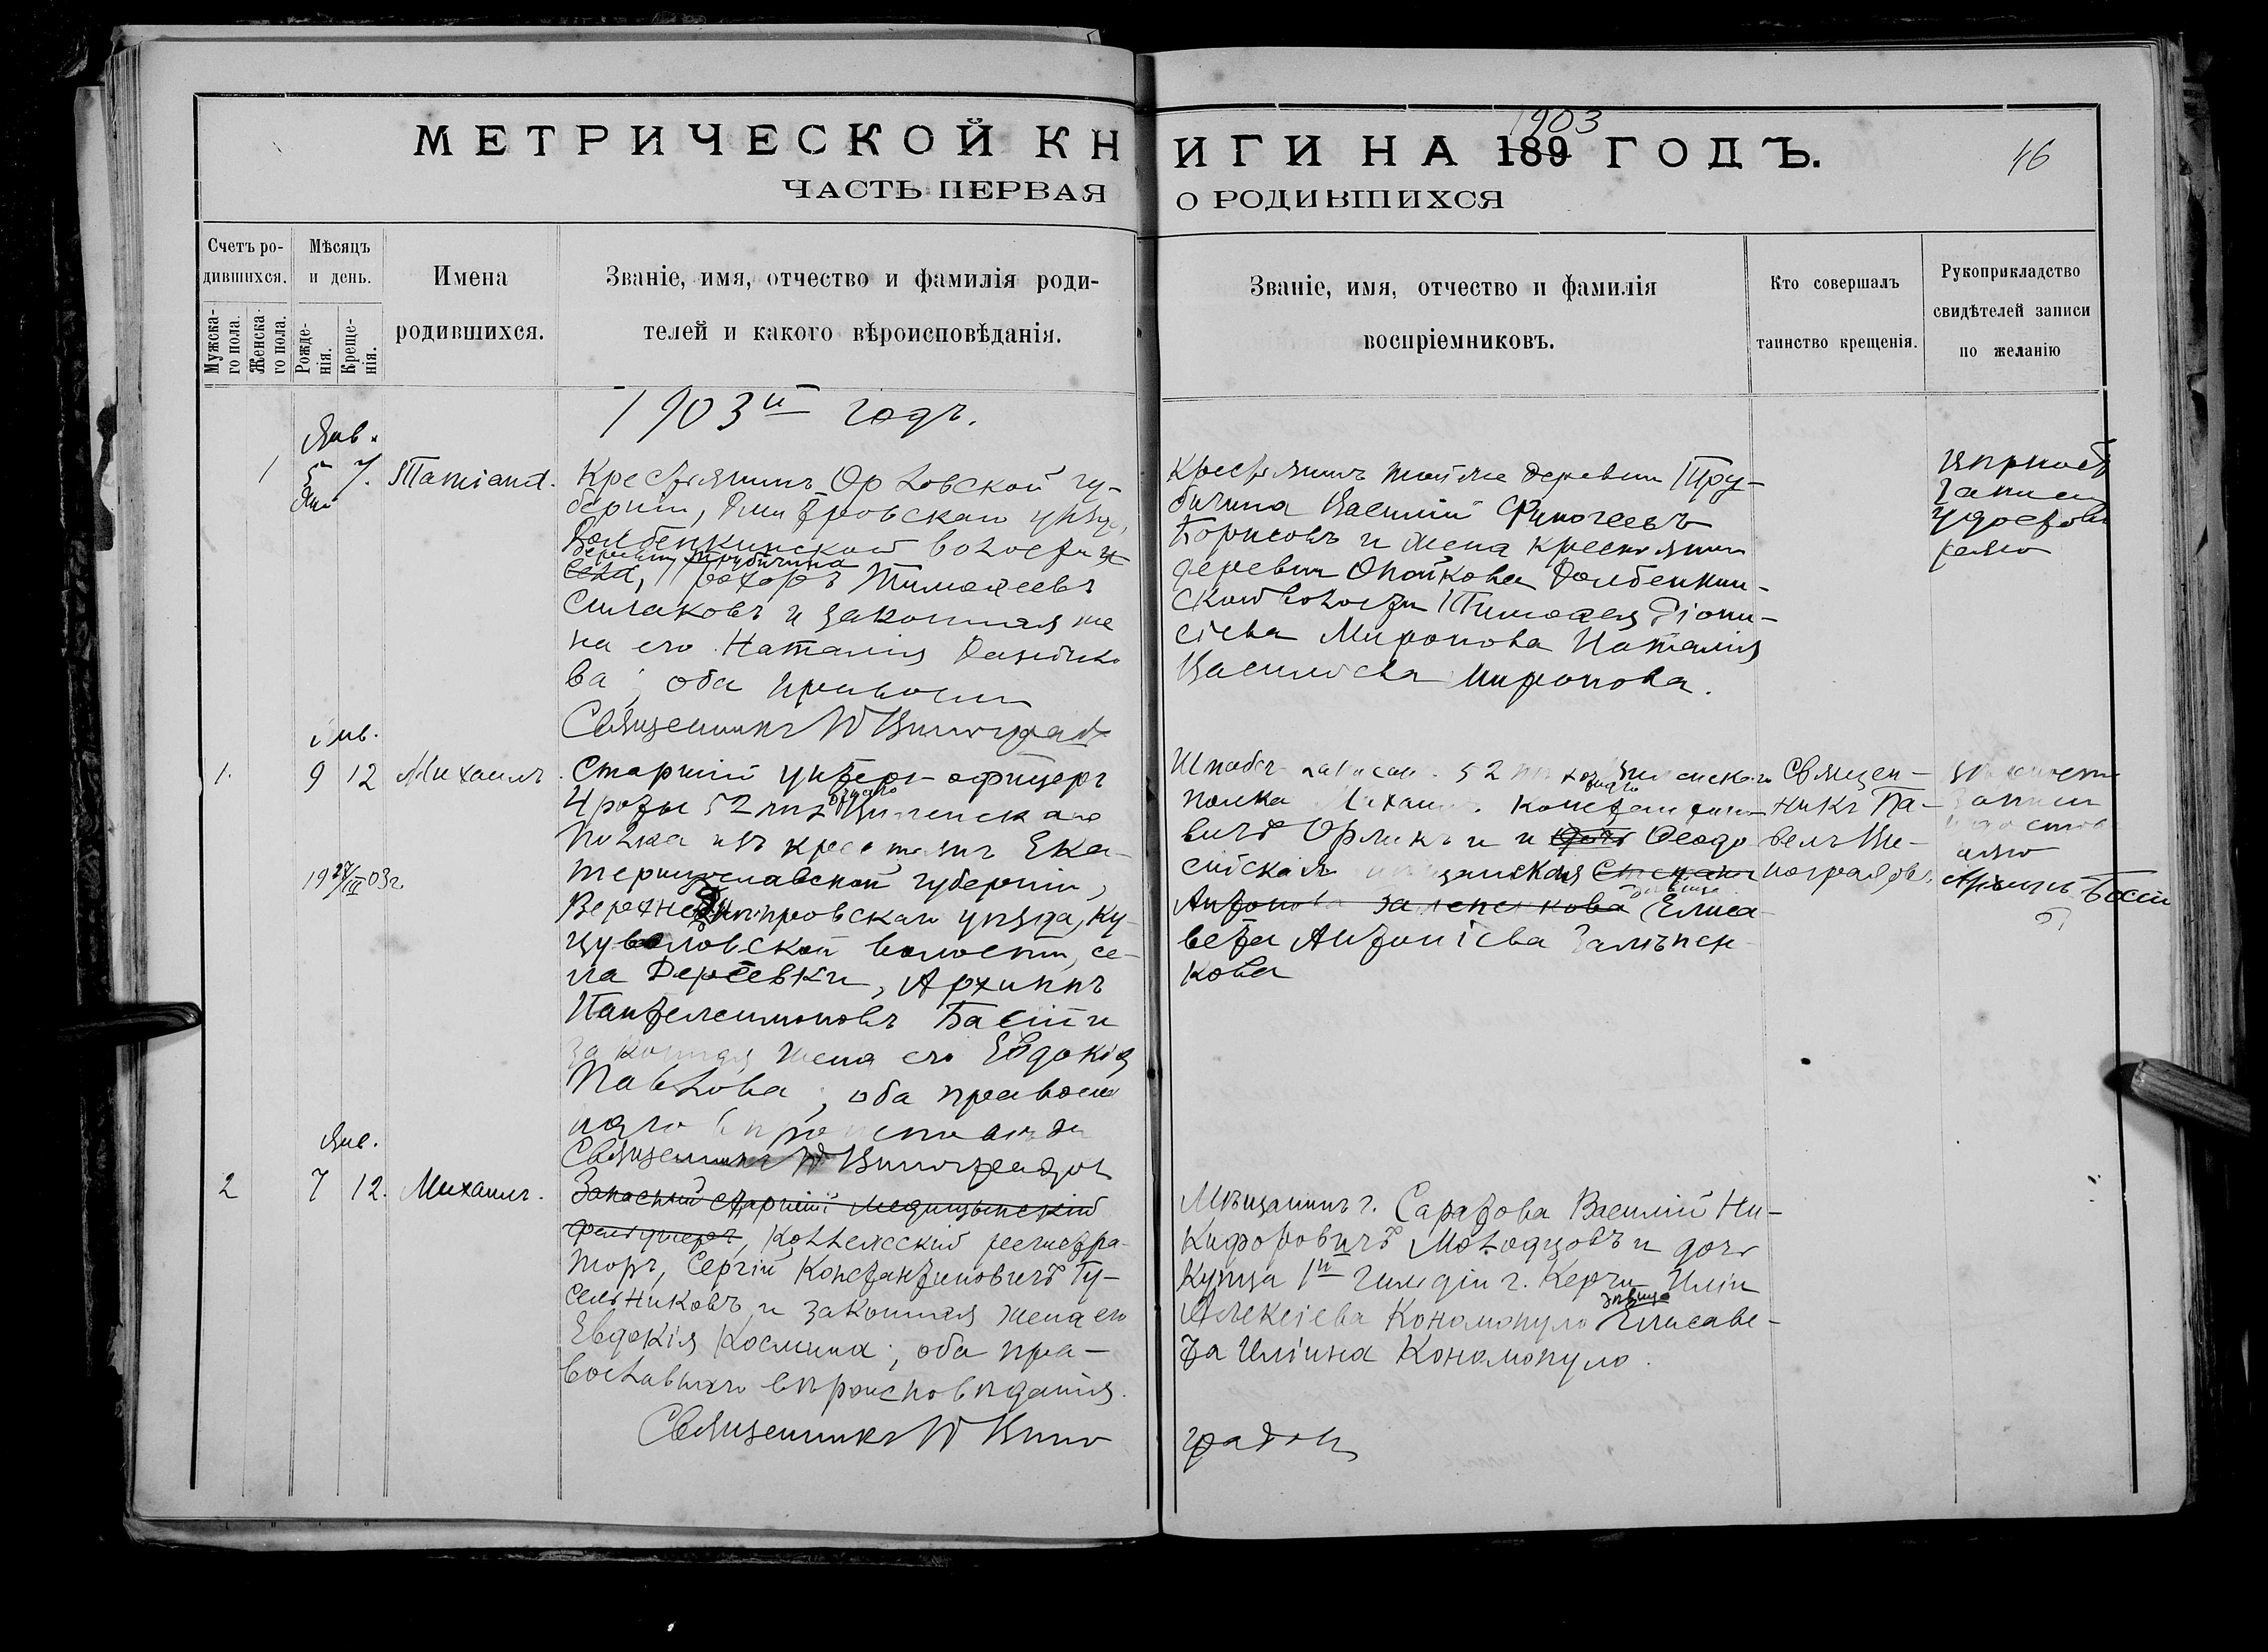 МЕТРИЧЕСКОЙ КНИГИ НА 189 ГОДЪ.
1903
46
ЧАСТЬ ПЕРВАЯ О РОДИВШИХСЯ
Счетъ ро-
дившихся.
Мужска-
го пола.
Женска-
го пола.
Мѣсяцъ
и день.
Рожде-
нія.
Креще-
нія.
Имена
родившихся.
Званіе, имя, отчество и фамилія роди-
телей и какого вѣроисповѣданія.
Званіе, имя, отчество и фамилія
воспріемниковъ.
Кто совершалъ
таинство крещенія.
Рукоприкладство
свидѣтелей записи
по желанію
1903й годъ.
Янв.
1 5 7.
Крестьянинъ Орловской гу-
берніи, Дмитровскаго уѣзда,
Долбенкинской волости
деревни Трубичина
села, Тимоѳеевъ
Симаковъ и законная же
на его Наталія
ва; оба
Священникъ П Виноградовъ
Крестьянинъ той же деревни Тру-
бичина Василій
Борисовъ и жена крестьянина
деревни Опойкова Долбенкин-
ской волости Тимоѳея Діони-
сіева Миронова Наталія
Василіева Миронова.
записи
Янв.
1. 9 12 Михаилъ.
19 27/III 03г.
Старшій унтеръ-офицеръ
4 роты 52 пѣх Виленскаго
полка изъ крестьянъ Ека-
теринославской губерніи,
Верхнеднѣпровскаго уѣзда, Ку-
цуволовской волости, се-
ла Деріевки, Архиппъ
Пантелеимоновъ Басій и
законная жена его Евдокія
Павлова; оба правосла
Священникъ П Виноградовъ
Штабсъ 52 Виленскаго
полка Михаилъ Константино-
вичъ Орликъ и Ѳеодо
сійская мѣщанская
Антонова дѣвица Елиса-
вета Антоніева Залѣпен-
кова
Священ-
никъ Па-
велъ Ви-
ноградовъ.
записи
Архипъ Басій
Янв.
2 7 12. Михаилъ.
Запасный старшій медицинскій
фельдшеръ, Коллежскій регистра-
торъ, Сергій Константиновичъ Гу-
сельниковъ и законная жена его
Евдокія Космина; оба пра-
вославнаго вѣроисповѣданія.
Священникъ П Вино
градовъ
Мѣщанинъ г. Саратова Василій Ни-
кифоровичъ Молодцовъ и дочь
купца 1й гильдіи г. Керчи Иліи
Алексіева Кономопуло дѣвица Елисаве-
та Иліина Кономопуло.